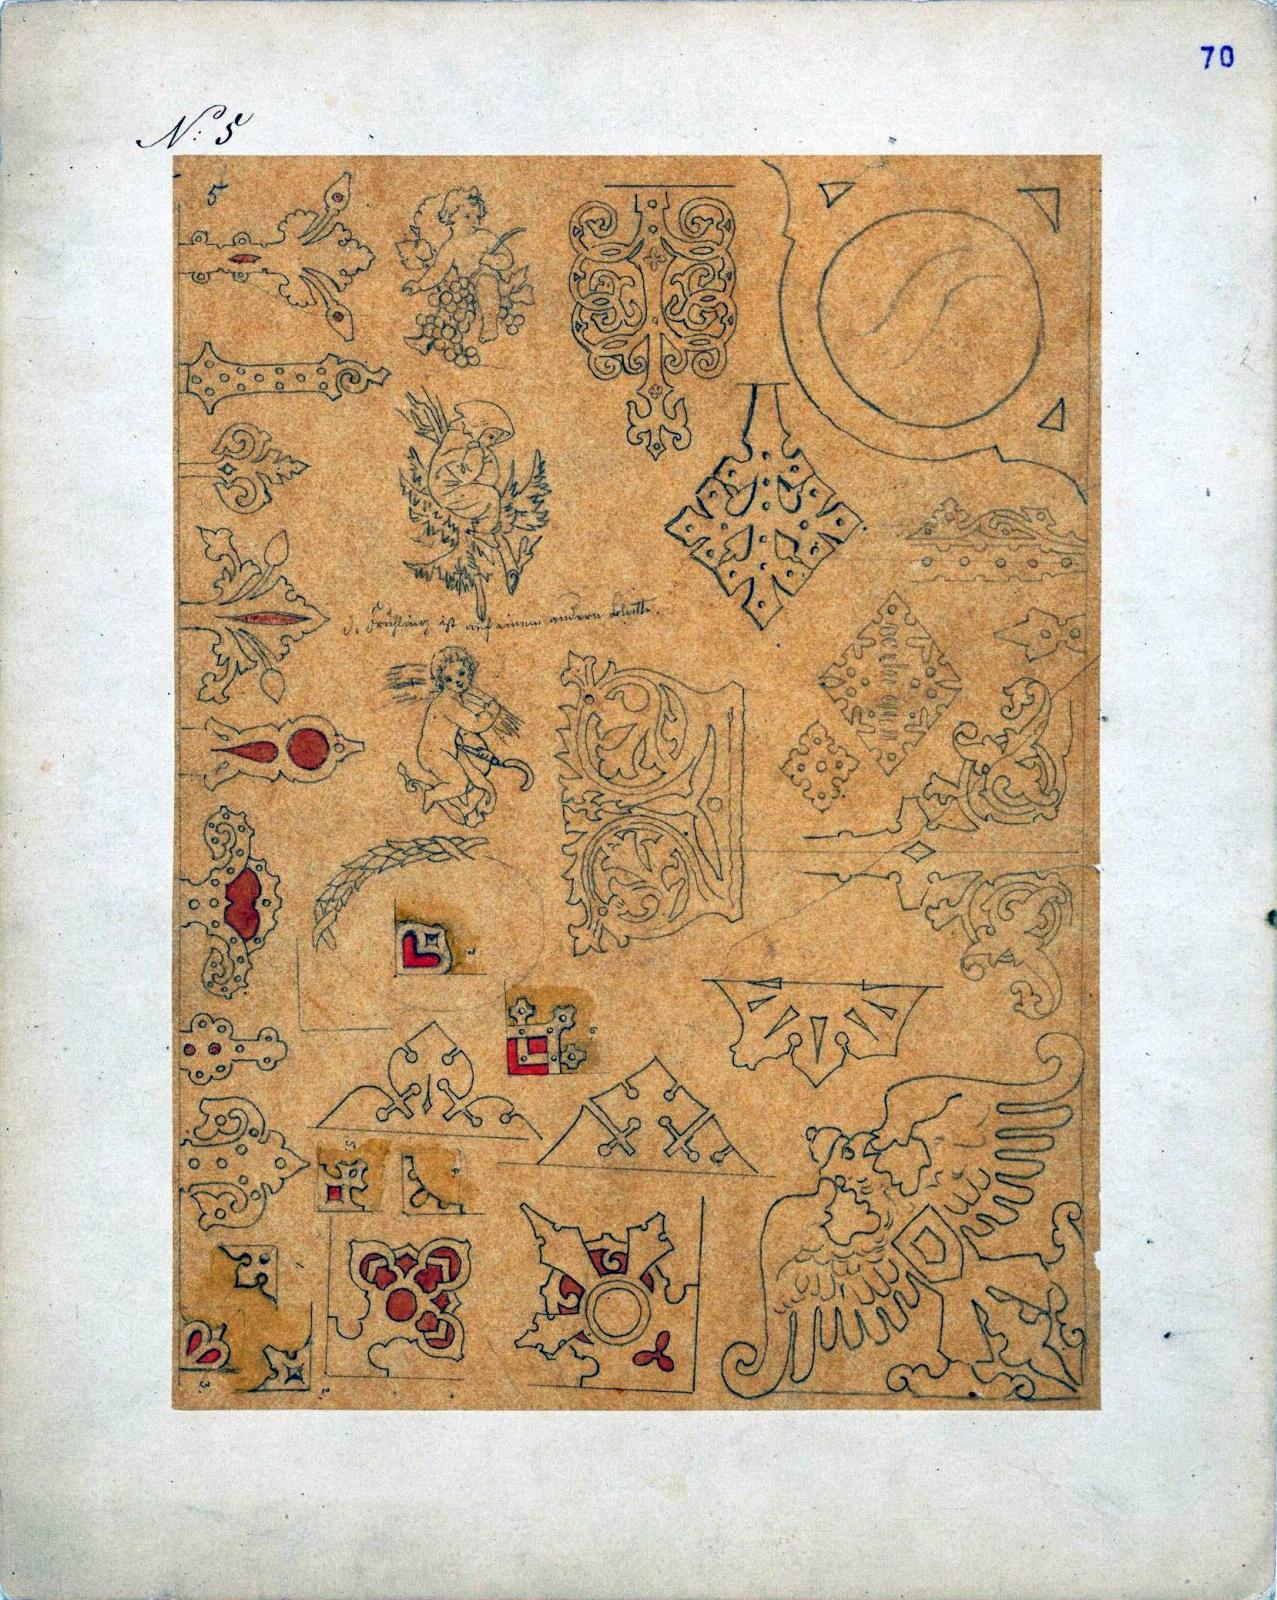 70
No: 5
5
d. Frühling ist auf einem andern Blatte.
5
4
3
2